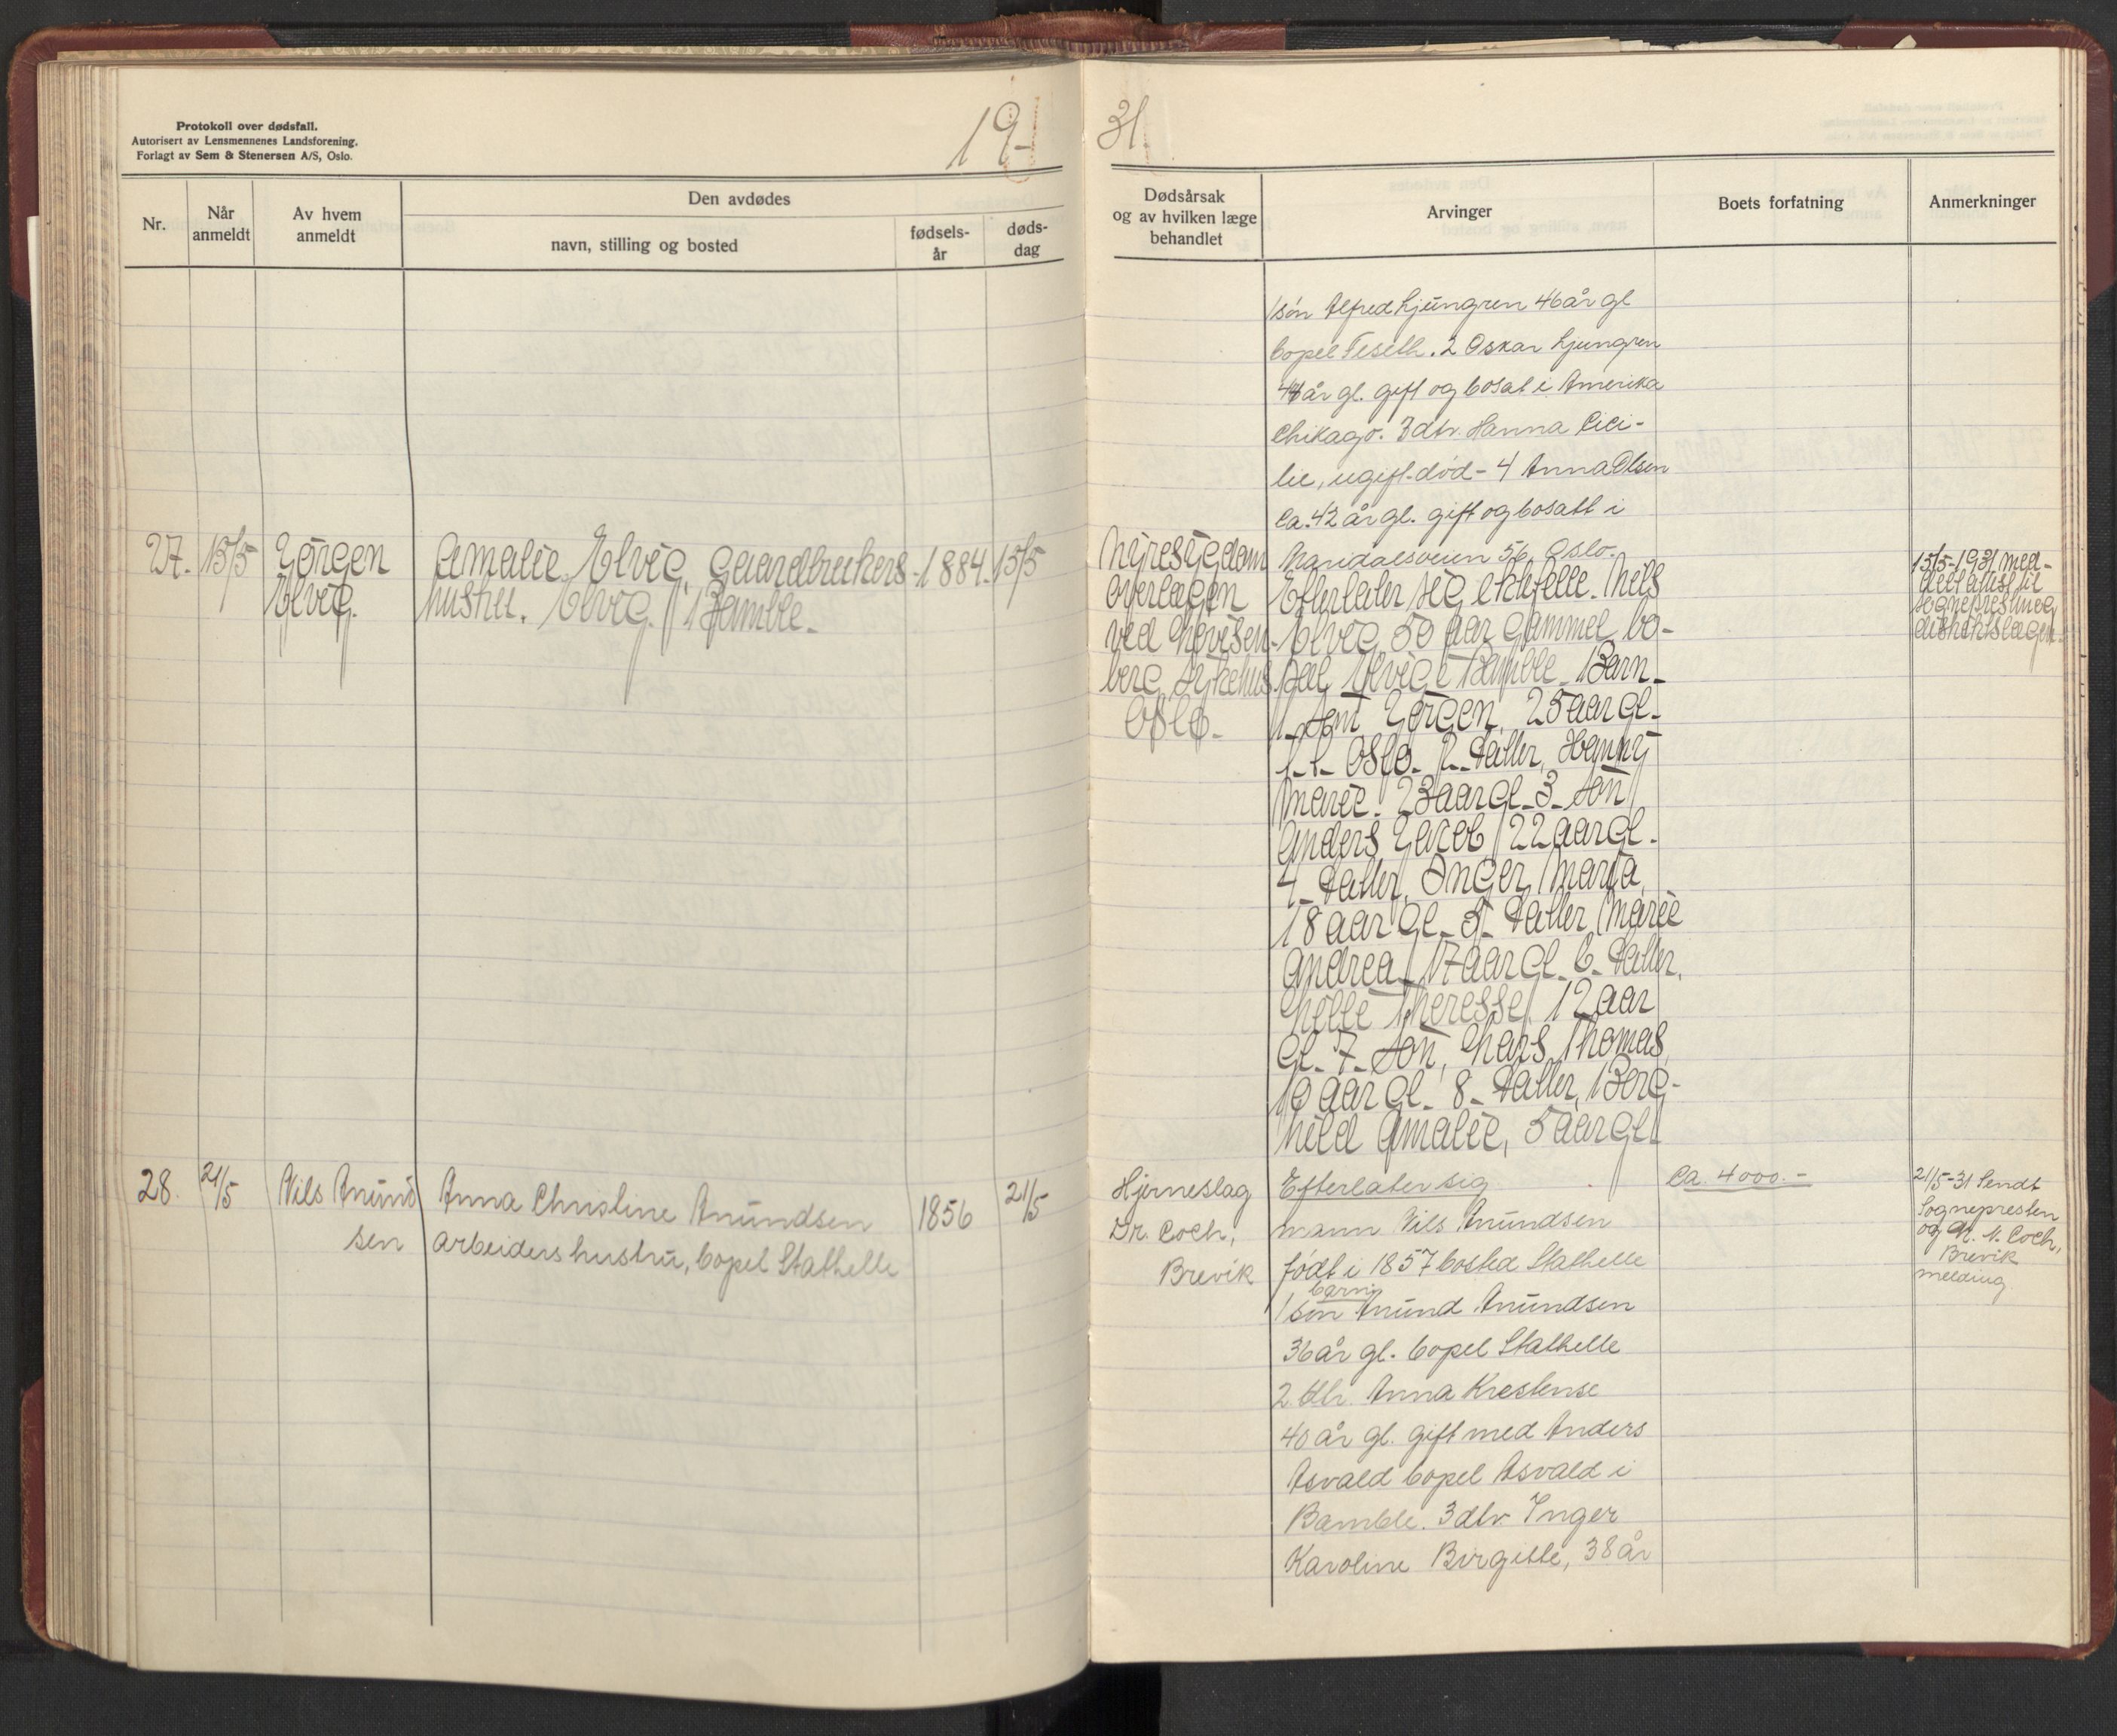 Protokoll over dødsfall.
Autorisert av Lensmennenes Landsforening.
Forlagt av Sem & Stenersen A/S, Oslo.
19-31.
Nr.
Når anmeldt
Av hvem anmeldt
Den avdødes
navn, stilling og bosted
fødsels-
år
døds-
dag
Dødsårsak
og av hvilken læge
behandlet
Arvinger
Boets forfatning
Anmerkninger
1 søn Alfred Ljungren 46 år gl
bopel Feseth. 2 Oskar Ljungren
44 år gl. gift og bosat i Amerika
Chikago. 3 dtr. Hanna Cici-
lie, ugift død - 4 Anna Olsen
Ca. 42 år gl. gift og bosatt i
Maridalsveien 56, Oslo.
27. 15/5 Jørgen
Elvig.
Amalie Elvig, Gaardbrukers-
hustru. Elvig. Bamble.
1884. 15/5
Nyresygdom
overlægen
ved Lovisen-
berg Sykehus
Oslo.
Efterlater sig ektefelle. Nils
Elvig 50 aar gammel bo-
pæl Elvig i Bamble. Barn-
1. Søn Jørgen, 25 aar gl.
f. t. Oslo. 2. Datter, Hanny
Marie. 23 aar gl. 3. Søn
Anders Jacob 22 aar gl.
4. Datter, Inger Marta,
18 aar gl. 5. Datter Marie
Andrea 17 aar gl. 6. Datter,
Theresse 12 aar
gl. 7. Søn, Lars Thomas,
10 aar gl. 8. Datter, Borg-
hild Amalie, 5 aar gl.
15/5-1931 med-
delt attest til
sognepresten og
distriktslægen.
28. 21/5 Nils Anund
sen
Anna Christine Anundsen
arbeiders hustru, bopel Stathelle
1856 21/5
Hjerneslag
Dr. Coch,
Brevik
Efterlater sig
mann Nils Anundsen
født i 1857 bosted Stathelle
barn
1 søn Anund Anundsen
36 år gl. bopel Stathelle
2. dtr. Anna Krestense
40 år gl. gift med Anders
Asvald bopel Asvald i
Bamble. 3 dtr. Inger
Karoline Birgitte, 38 år
Ca. 4000.-
21/5-31 Sendt
Sognepresten
og Coch,
Brevik
melding